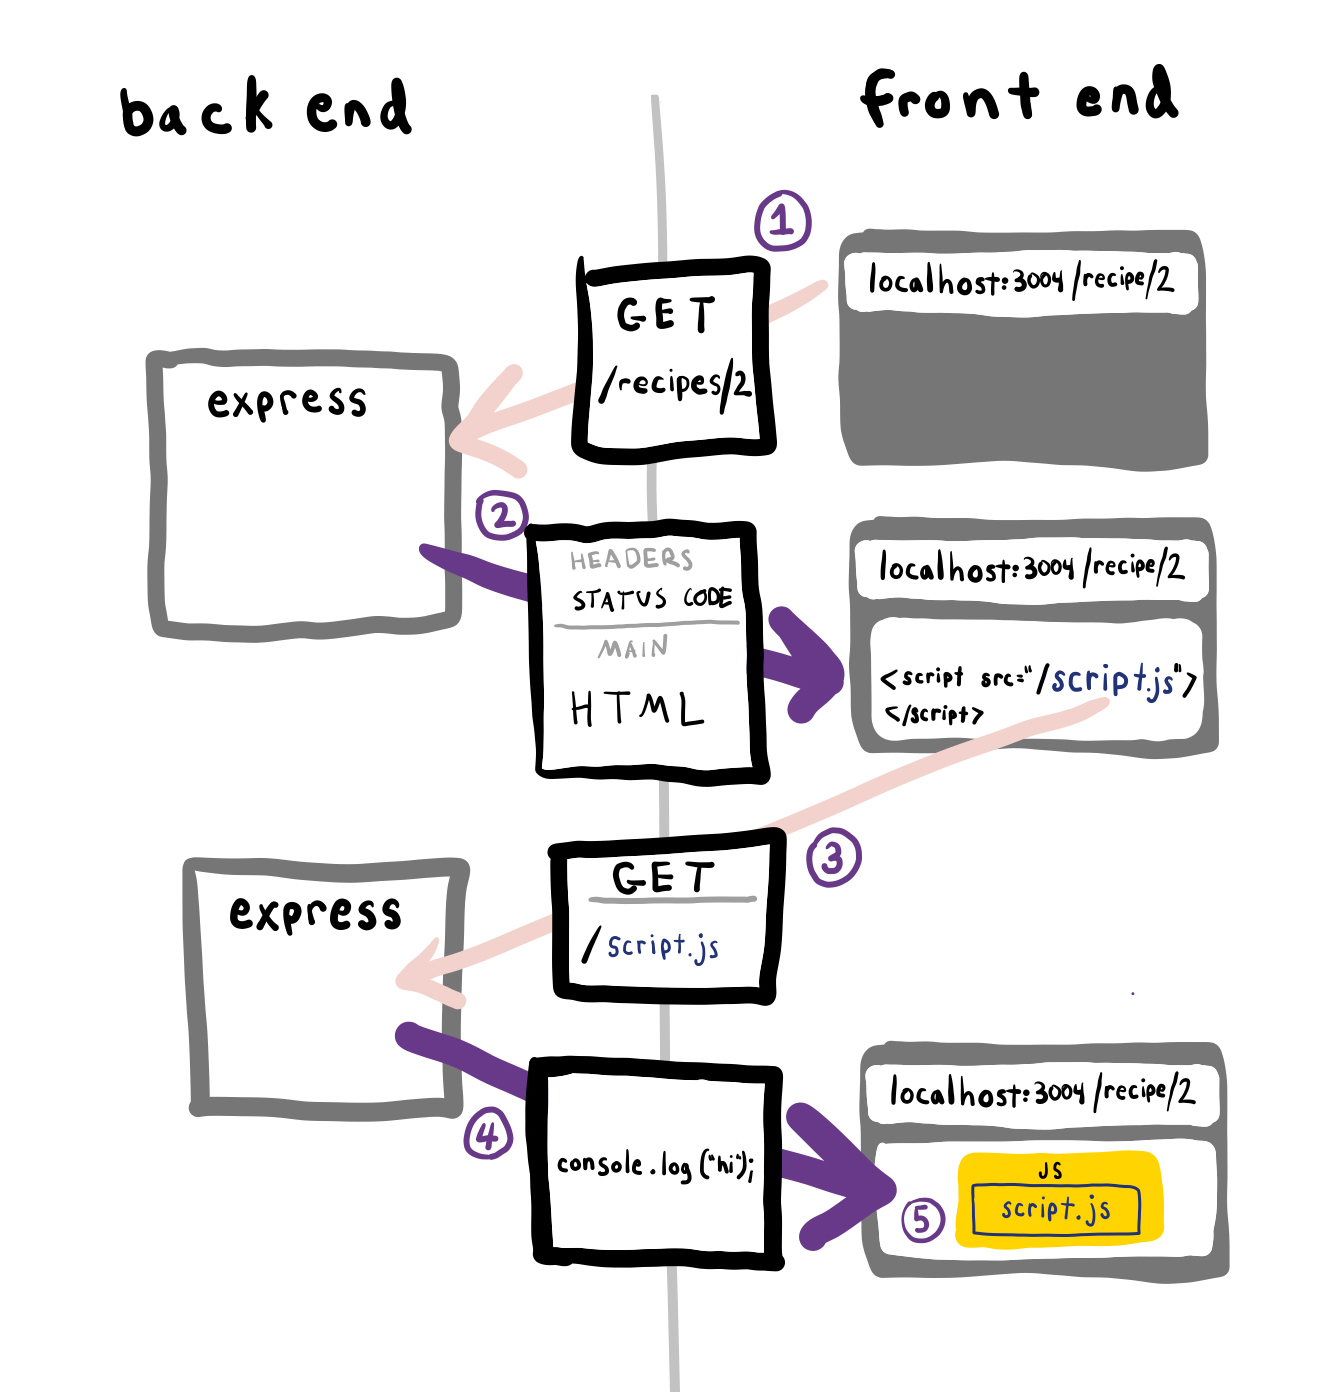 back end
front end
1
localhost:3004/recipe/2
GET
/recipes/2
express
2
HEADERS
STATUS CODE
MAIN
HTML
localhost:3004/recipe/2
<script src="/script.js">
</script>
3
GET
/script.js
express
4
console.log("hi");
localhost:3004/recipe/2
5
JS
script.js